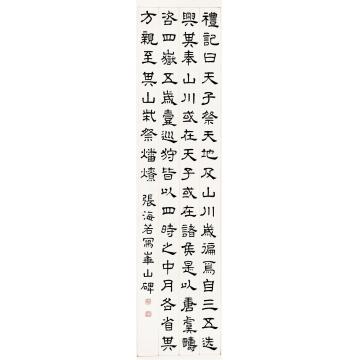 禮記曰天子祭天地及山川歲徧焉自三五迭
興其奉山川或在天子或在諸侯是以唐虞疇
咨四嶽五歲壹巡狩皆以四時之中月各省其
方親至其山柴祭燔燎
張海若寫華山碑